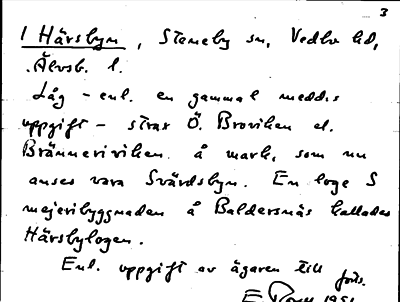 3
1 Härsbyn, Steneby sn, Vedbo hd,
Älvsb. l.
Låg – enl. en gammal meddis
uppgift – strax Ö. Broviken el.
Bränneriviken å mark, som nu
anses vara Svärdsbyn. En loge S
mejeribyggnaden å Baldersnäs kallades
Härsbylogen.
Enl. uppgift av ägaren till
förs.